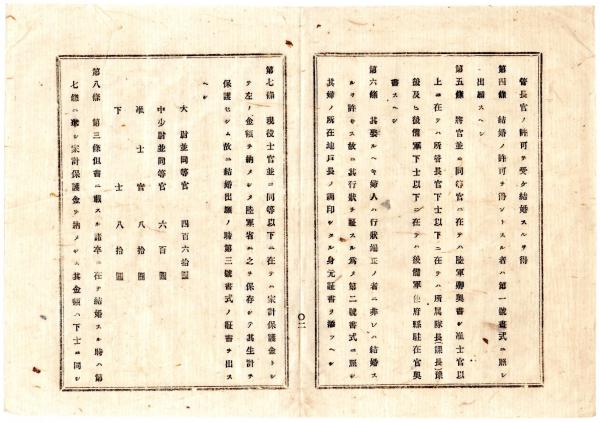 管長官ノ許可ヲ受ケ結婚スルヲ得
第四條 結婚ノ許可ヲ得ントスル者ハ第一號書式ニ照シ
出願スヘシ
第五條 將官並ニ同等官ニ在テハ陸軍卿奧書シ准士官以
上ニ在テハ所管長官下士以下ニ在テハ所屬隊長
後及ヒ後備軍下士以下ニ在テハ後備軍使府縣駐在官奧
書スヘシ
第六條 其娶ルヘキ婦人ハ行狀端正ノ者ニ非レハ結婚ス
ルヲ許サス故ニ其行狀ヲ証スル爲メ第二號書式ニ照シ
其婦ノ所在地戸長ノ調印シタル身元証書ヲ添フヘシ
〇二
第七條 現役士官並ニ同等以下ニ在テハ家計保護金トシ
テ左ノ金額ヲ納メシメ陸軍省ニ之ヲ保存シテ其生計ヲ
保護セシム故ニ結婚出願ノ時第三號書式ノ証書ヲ出ス
ヘシ
大尉並同等官 四百六拾圓
中少尉並同等官 六百圓
准士官 八拾圓
下士 八拾圓
第八條 第三條但書ニ載スル諸卒ニ在テ結婚スル時ハ第
七條ニ準シ家計保護金ヲ納メシメ其金額ハ下士ニ同シ